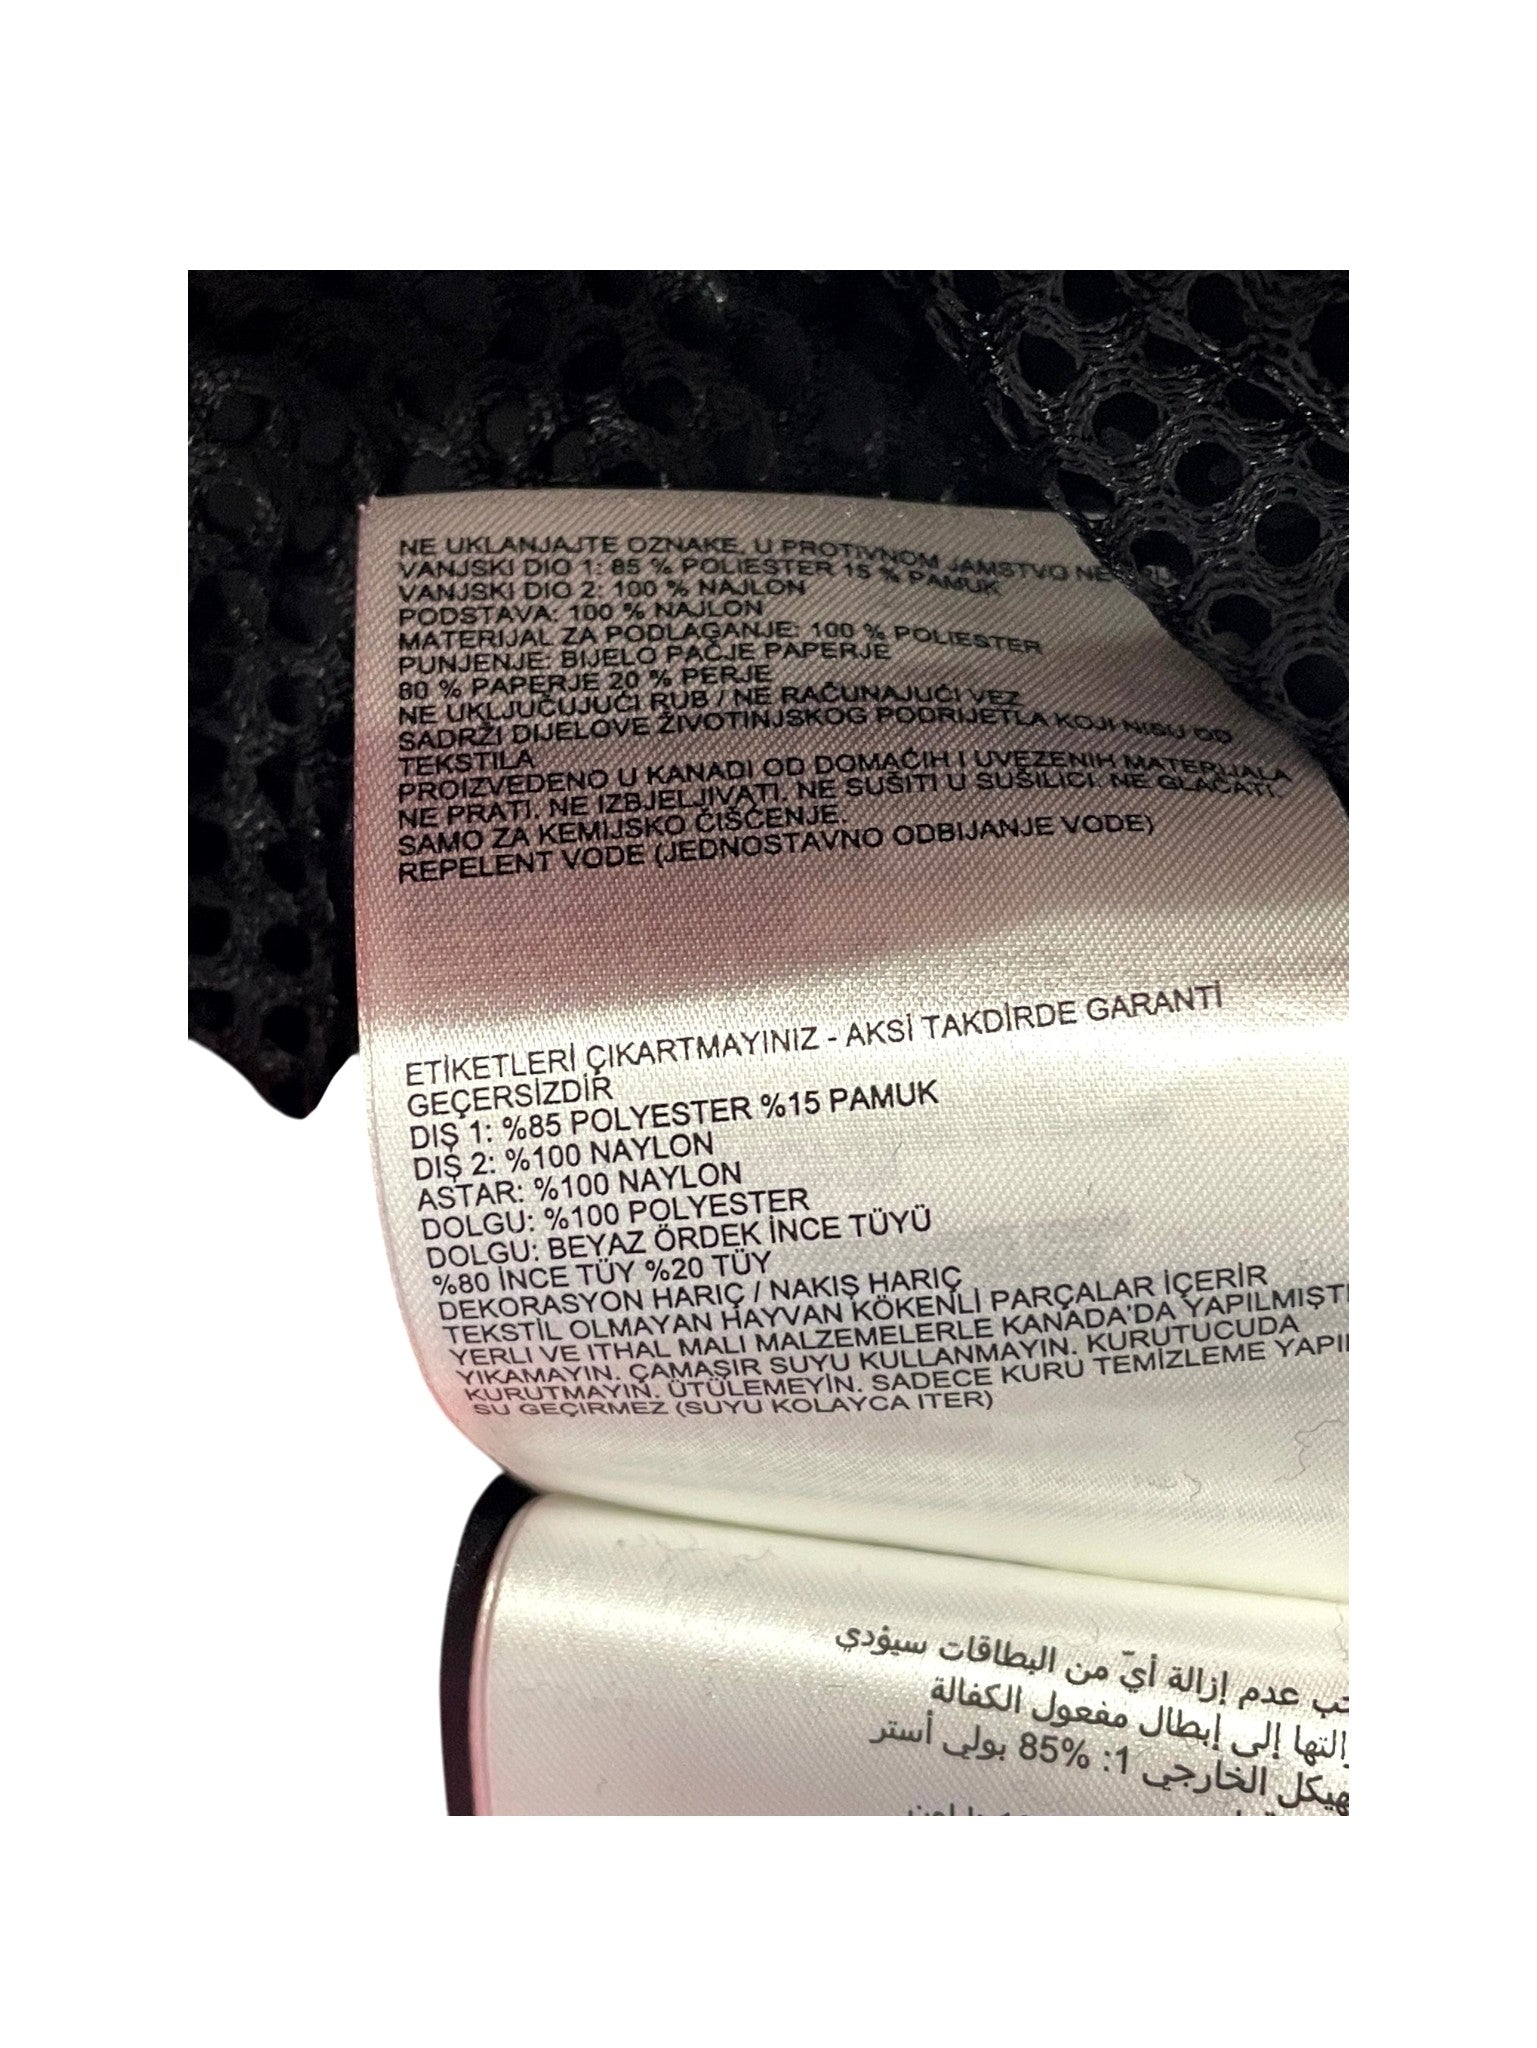 NE UKLANJAJTE OZNAKE, U PROTIVNOM JAMSTVO NE
VANJSKI DIO 1: 85 % POLIESTER 15 % PAMUK
VANJSKI DIO 2: 100 % NAJLON
PODSTAVA: 100 % NAJLON
MATERIJAL ZA PODLAGANJE: 100 % POLIESTER
PUNJENJE: BIJELO PAČJE PAPERJE
80 % PAPERJE 20 % PERJE
NE UKLJUČUJUĆI RUB / NE RAČUNAJUĆI VEZ
SADRŽI DIJELOVE ŽIVOTINJSKOG PODRIJETLA KOJI NISU OD
TEKSTILA
PROIZVEDENO U KANADI OD DOMAĆIH I UVEZENIH MATERIJALA
NE PRATI. NE IZBJELJIVATI. NE SUŠITI U SUŠILICI. NE GLAČATI.
SAMO ZA KEMIJSKO ČIŠĆENJE.
REPELENT VODE (JEDNOSTAVNO ODBIJANJE VODE)
ETİKETLERİ ÇIKARTMAYINIZ - AKSİ TAKDİRDE GARANTİ
GEÇERSİZDİR
DIŞ 1: %85 POLYESTER %15 PAMUK
DIŞ 2: %100 NAYLON
ASTAR: %100 NAYLON
DOLGU: %100 POLYESTER
DOLGU: BEYAZ ÖRDEK İNCE TÜYÜ
%80 İNCE TÜY %20 TÜY
DEKORASYON HARIÇ / NAKIŞ HARIÇ
TEKSTİL OLMAYAN HAYVAN KÖKENLİ PARÇALAR İÇERİR
YERLI VE ITHAL MALI MALZEMELERLE KANADA'DA YAPILMIŞTI
YIKAMAYIN. ÇAMAŞIR SUYU KULLANMAYIN. KURUTUCUDA
KURUTMAYIN. ÜTÜLEMEYİN. SADECE KURU TEMİZLEME YAPI
SU GEÇIRMEZ (SUYU KOLAYCA ITER)
عدم إزالة أيّ من البطاقات سيؤدي
إلى إبطال مفعول الكفالة
الخارجي 1: 85% بولي أستر